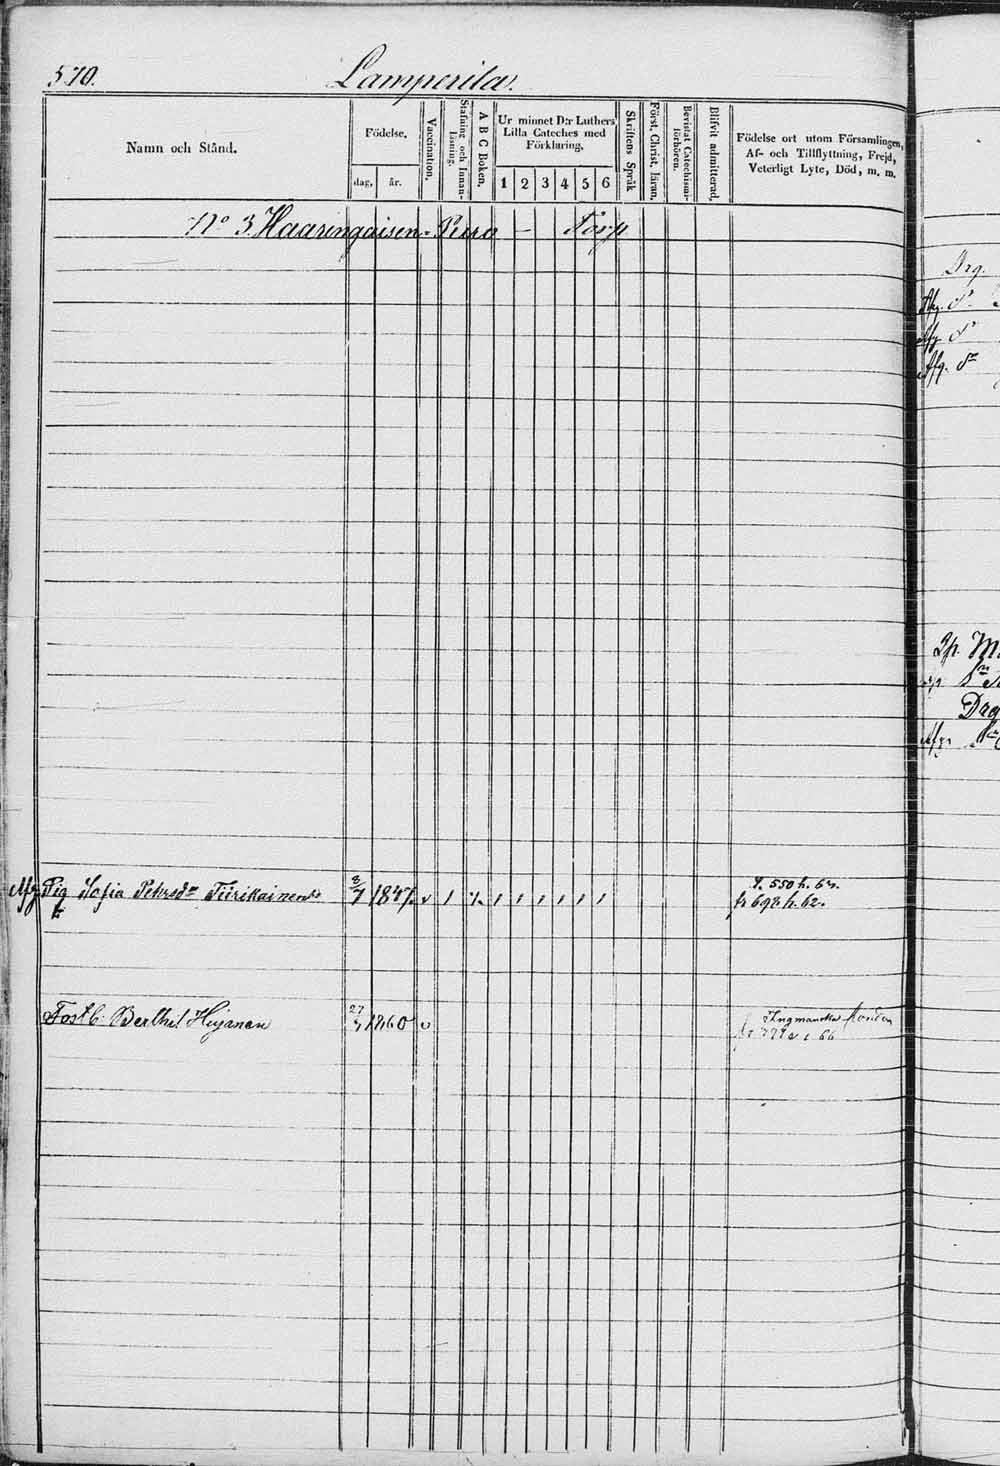 570.
Lamperila.
Namn och Stånd.
Födelse.
dag,
år.
Vaccination.
Stafning och Innan-
läsning.
A B C Boken.
Ur minnet D:r Luthers
Lilla Cateches med
Förklaring.
1 2 3 4 5 6
Skriftens Språk
Först. Christ. läran.
Bevistat Catechismi-
förhören.
Blifvit admitterad.
Födelse ort utom Församlingen,
Af- och Tillflyttning, Frejd,
Veterligt Lyte, Död, m. m.
N:o 3. Haaringaisen-Peura - Torp
Afg Pig Sofia Petersd:r Tiirikainen 8/7 1847. v
T. 550 h. 63.
fr 698 h. 62.
Fostb. Berthil Hujanen 27/3 1860 v
Ingmanska fonden
66
Drg.
Afg.
Afg
Afg.